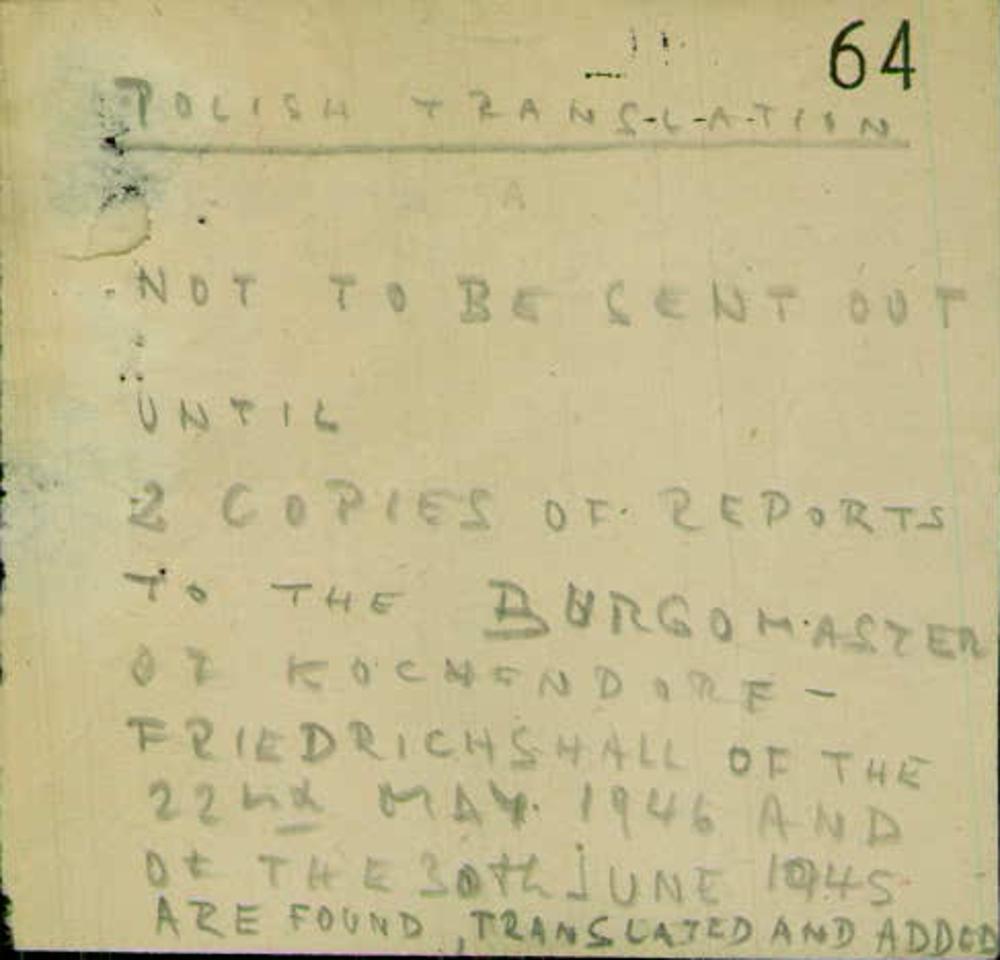 64
POLISH TRANSLATION
A
NOT TO BE SENT OUT
UNTIL
2 COPIES OF REPORTS
TO THE BURGOMASTER
OF KOCHENDORF -
FRIEDRICHSHALL OF THE
22nd MAY. 1946 AND
OF THE 30th JUNE 1945
ARE FOUND, TRANSLATED AND ADDED